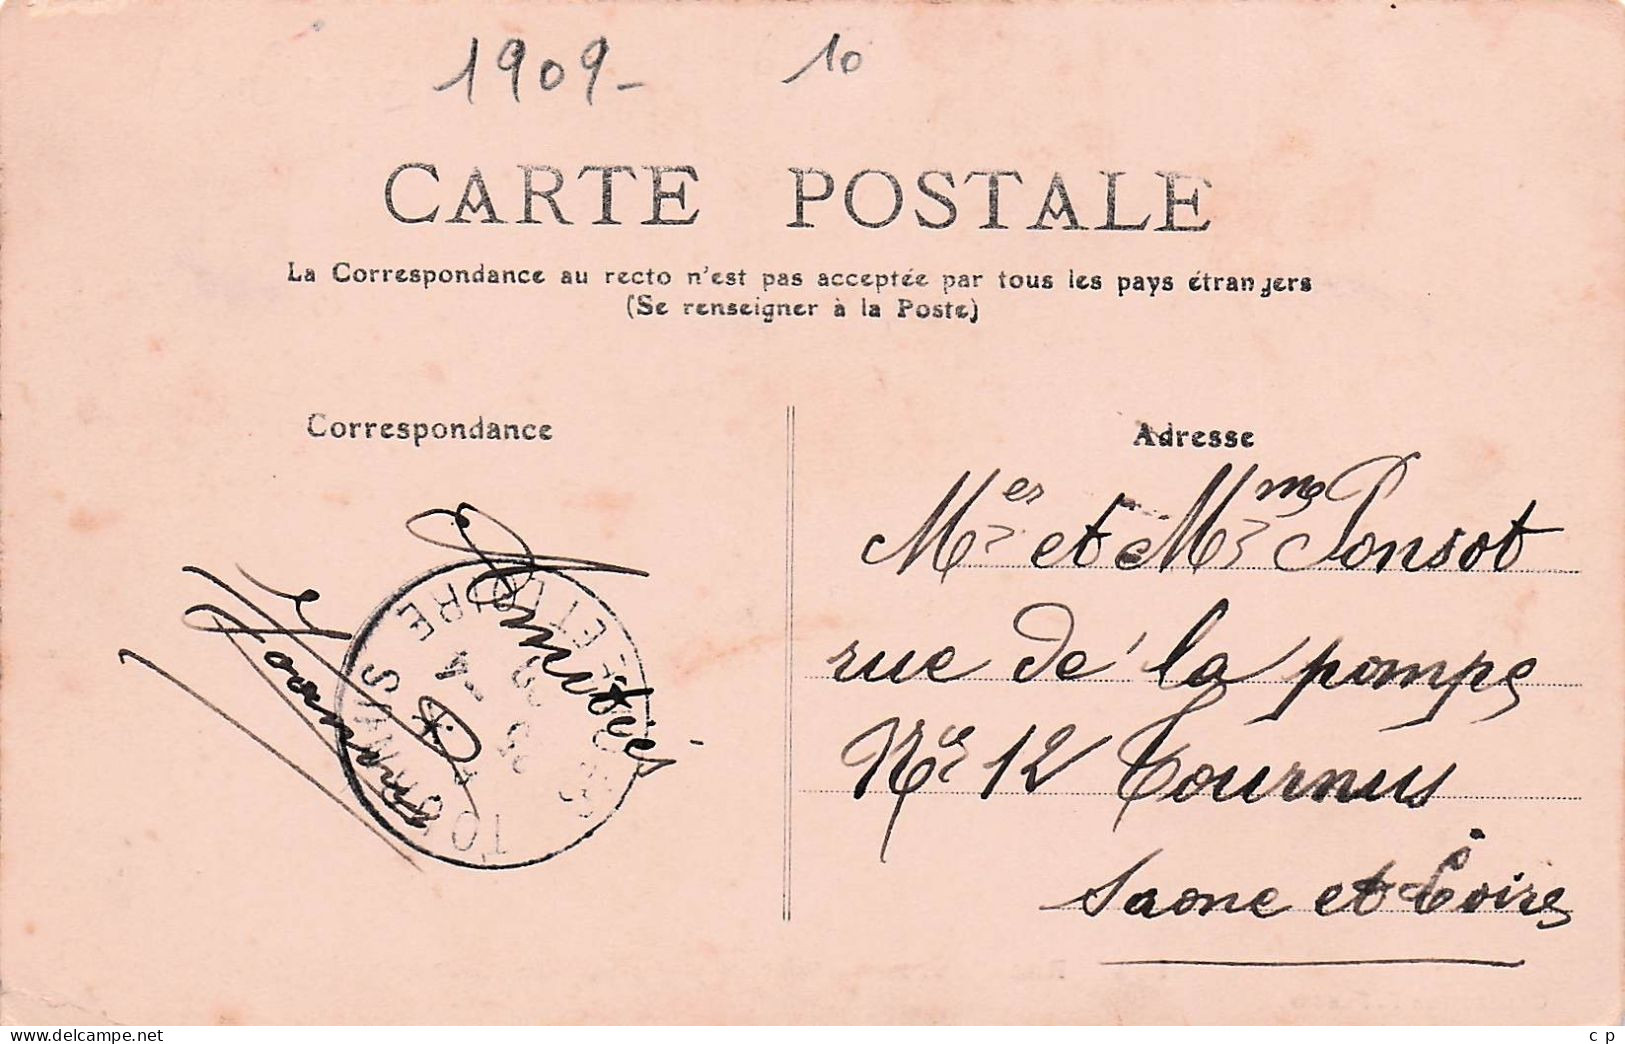 1909- 10
CARTE POSTALE
La Correspondance au recto n'est pas acceptée par tous les pays étrangers
(Se renseigner à la Poste)
Correspondance
Adresse
Amitiés
TOURNUS
SAONE-ET-LOIRE
Mer et Mme Ponsot
rue de la pompe
No 12 Tournus
Saone et Loire
www.delcampe.net
c p